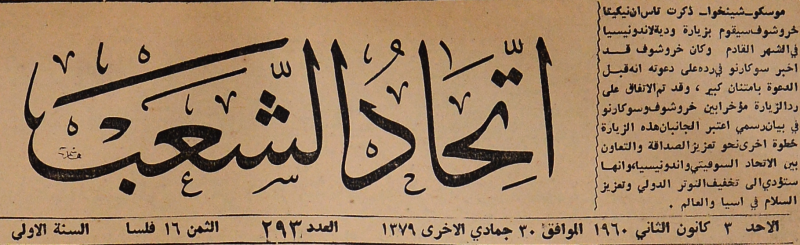 موسكو ـ شينخوا ـ ذكرت تاس ان نيكيتا
خروشوف سيقوم بزيارة ودية لاندونيسيا
في الشهر القادم وكان خروشوف قد
اخبر سوكارنو في رده على دعوته انه قبل
الدعوة بامتنان كبير ، وقد تم الاتفاق على
رد الزيارة مؤخرا بين خروشوف وسوكارنو
في بيان رسمي اعتبر الجانبان هذه الزيارة
خطوة اخرى نحو تعزيز الصداقة والتعاون
بين الاتحاد السوفيتي واندونيسيا، وانها
ستؤدي الى تخفيف التوتر الدولي وتعزيز
السلام في اسيا والعالم .
اتحاد الشعب
الاحد ٣ كانون الثاني ١٩٦٠ الموافق ٣٠ جمادي الاخرى ١٣٧٩ العدد ٢٩٣ الثمن ١٦ فلسا السنة الاولى